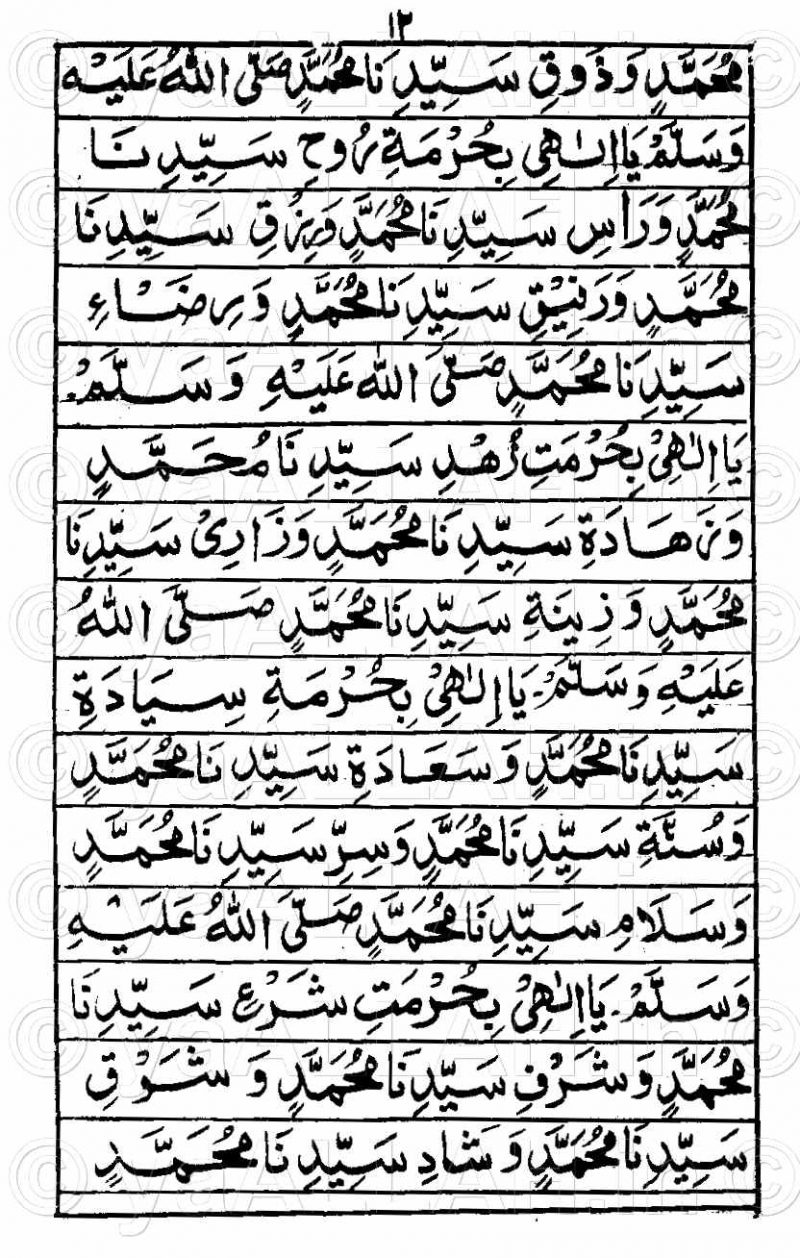 ١٢
مُحَمَّدٍ وَذَوْقِ سَيِّدِنَا مُحَمَّدٍ صَلَّى اللهُ عَلَيْهِ
وَسَلَّمْ يَا اِلٰهِىْ بِحُرْمَةِ رُوْحِ سَيِّدِنَا
مُحَمَّدٍ وَرَاْسِ سَيِّدِنَا مُحَمَّدٍ وَرِزْقِ سَيِّدِنَا
مُحَمَّدٍ وَرَفِيْقِ سَيِّدِنَا مُحَمَّدٍ وَرِضَاءِ
سَيِّدِنَا مُحَمَّدٍ صَلَّى اللهُ عَلَيْهِ وَسَلَّمْ۔
يَا اِلٰهِىْ بِحُرْمَتِ زُهْدِ سَيِّدِنَا مُحَمَّدٍ
وَزَهَادَةِ سَيِّدِنَا مُحَمَّدٍ وَزَارِىْ سَيِّدِنَا
مُحَمَّدٍ وَزِينَةِ سَيِّدِنَا مُحَمَّدٍ صَلَّى اللهُ
عَلَيْهِ وَسَلَّمْ۔ يَا اِلٰهِىْ بِحُرْمَةِ سِيَادَةِ
سَيِّدِنَا مُحَمَّدٍ وَسَعَادَةِ سَيِّدِنَا مُحَمَّدٍ
وَسُنَّةِ سَيِّدِنَا مُحَمَّدٍ وَسِرِّ سَيِّدِنَا مُحَمَّدٍ
وَسَلَامِ سَيِّدِنَا مُحَمَّدٍ صَلَّى اللهُ عَلَيْهِ
وَسَلَّمْ۔ يَا اِلٰهِىْ بِحُرْمَتِ شَرْعِ سَيِّدِنَا
مُحَمَّدٍ وَشَرَفِ سَيِّدِنَا مُحَمَّدٍ وَشَوْقِ
سَيِّدِنَا مُحَمَّدٍ وَشَادِ سَيِّدِنَا مُحَمَّدٍ